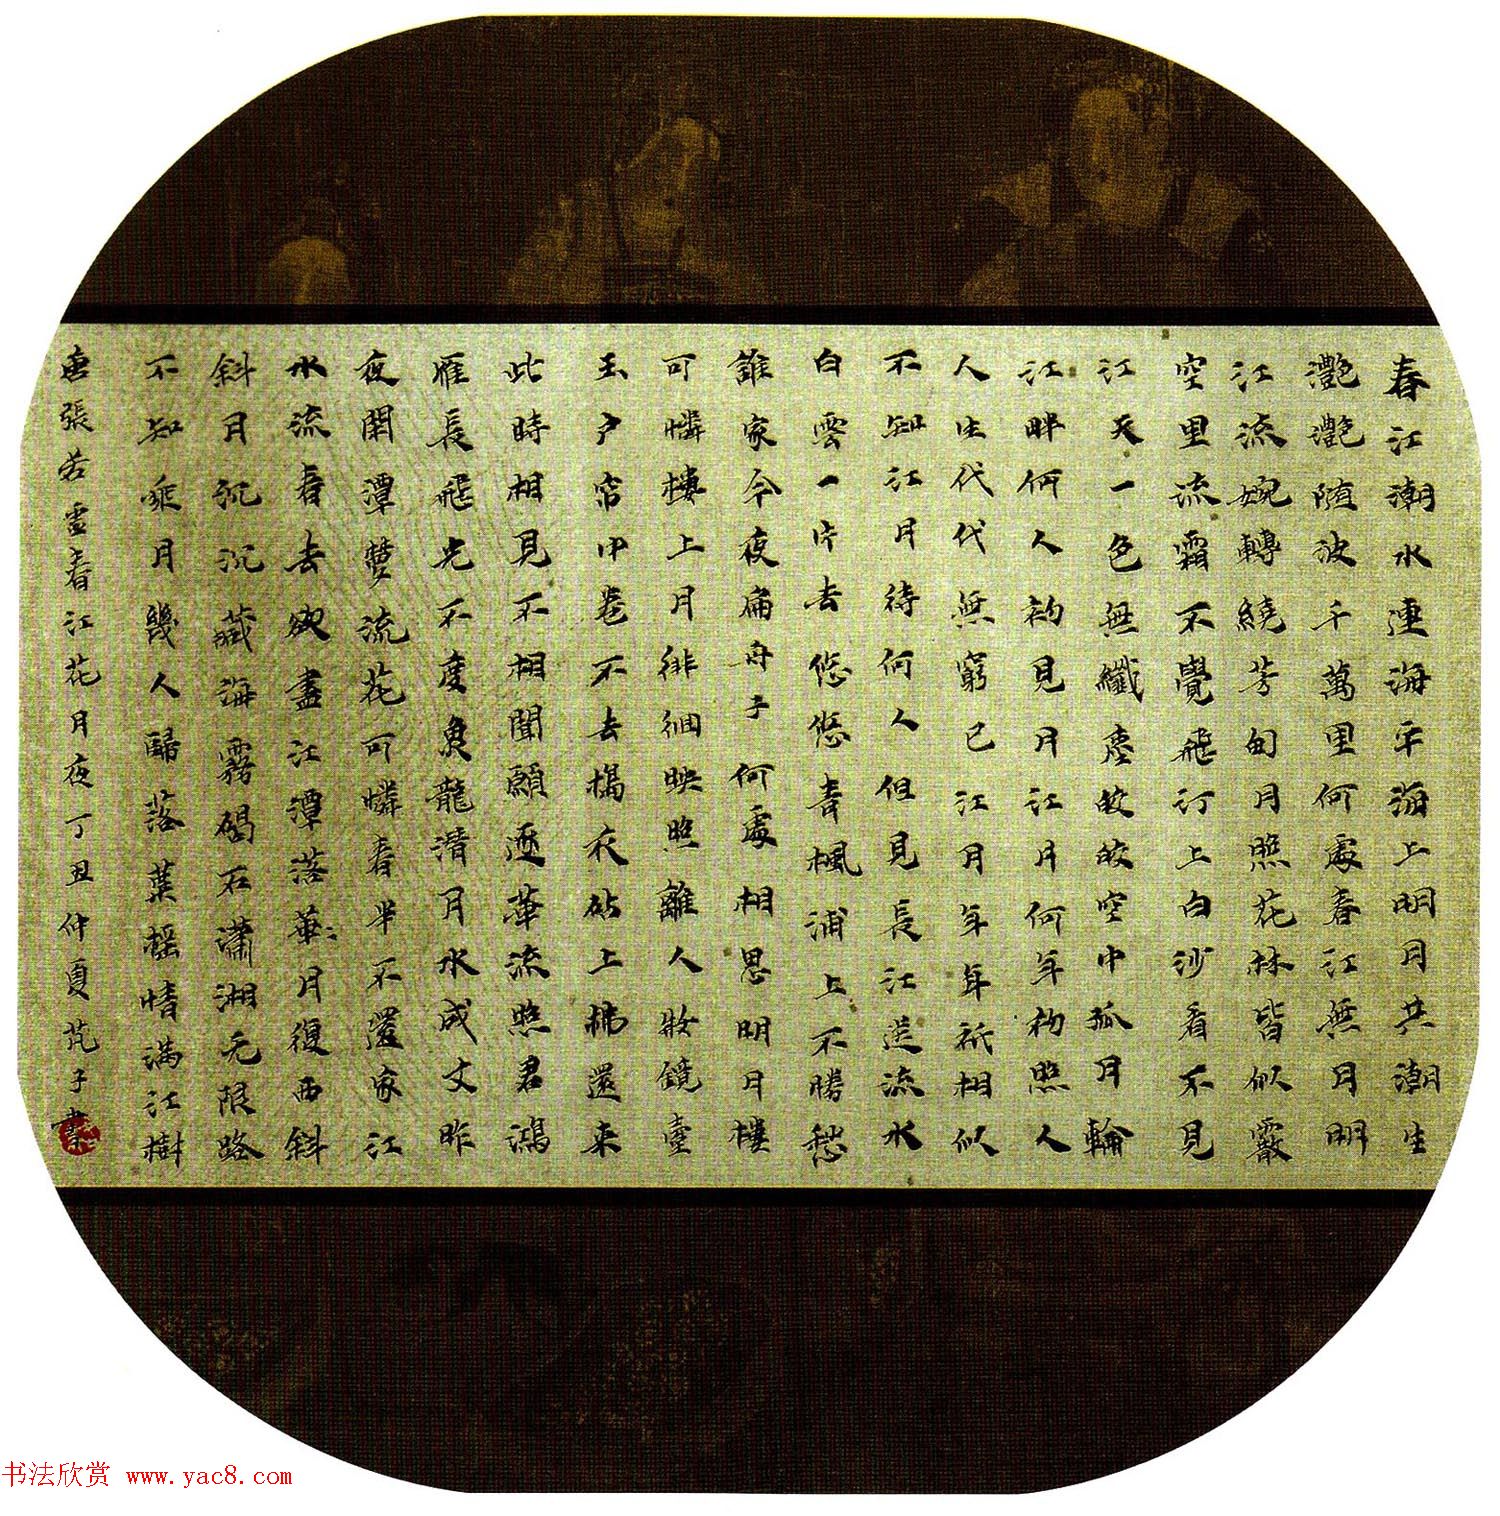 春江潮水連海平海上明月共潮生
灧灧随波千萬里何處春江無月明
江流婉轉繞芳甸月照花林皆似霰
空里流霜不覺飛汀上白沙看不見
江天一色無纖塵皎皎空中孤月輪
江畔何人初見月江月何年初照人
人生代代無窮已江月年年祇相似
不知江月待何人但見長江送流水
白雲一片去悠悠青楓浦上不勝愁
誰家今夜扁舟子何處相思明月樓
可憐樓上月徘徊映照離人妝鏡臺
玉户帘中卷不去搗衣砧上拂還来
此時相見不相聞願逐華流照君鴻
雁長飛光不度魚龍潛月水成文昨
夜閑潭夢流花可憐春半不還家江
水流春去欲盡江潭落華月復西斜
斜月沉沉藏海霧碣石瀟湘无限路
不知乘月幾人歸落葉摇情满江樹
唐張若虚春江花月夜丁丑仲夏芃子書
书法欣赏 www.yac8.com